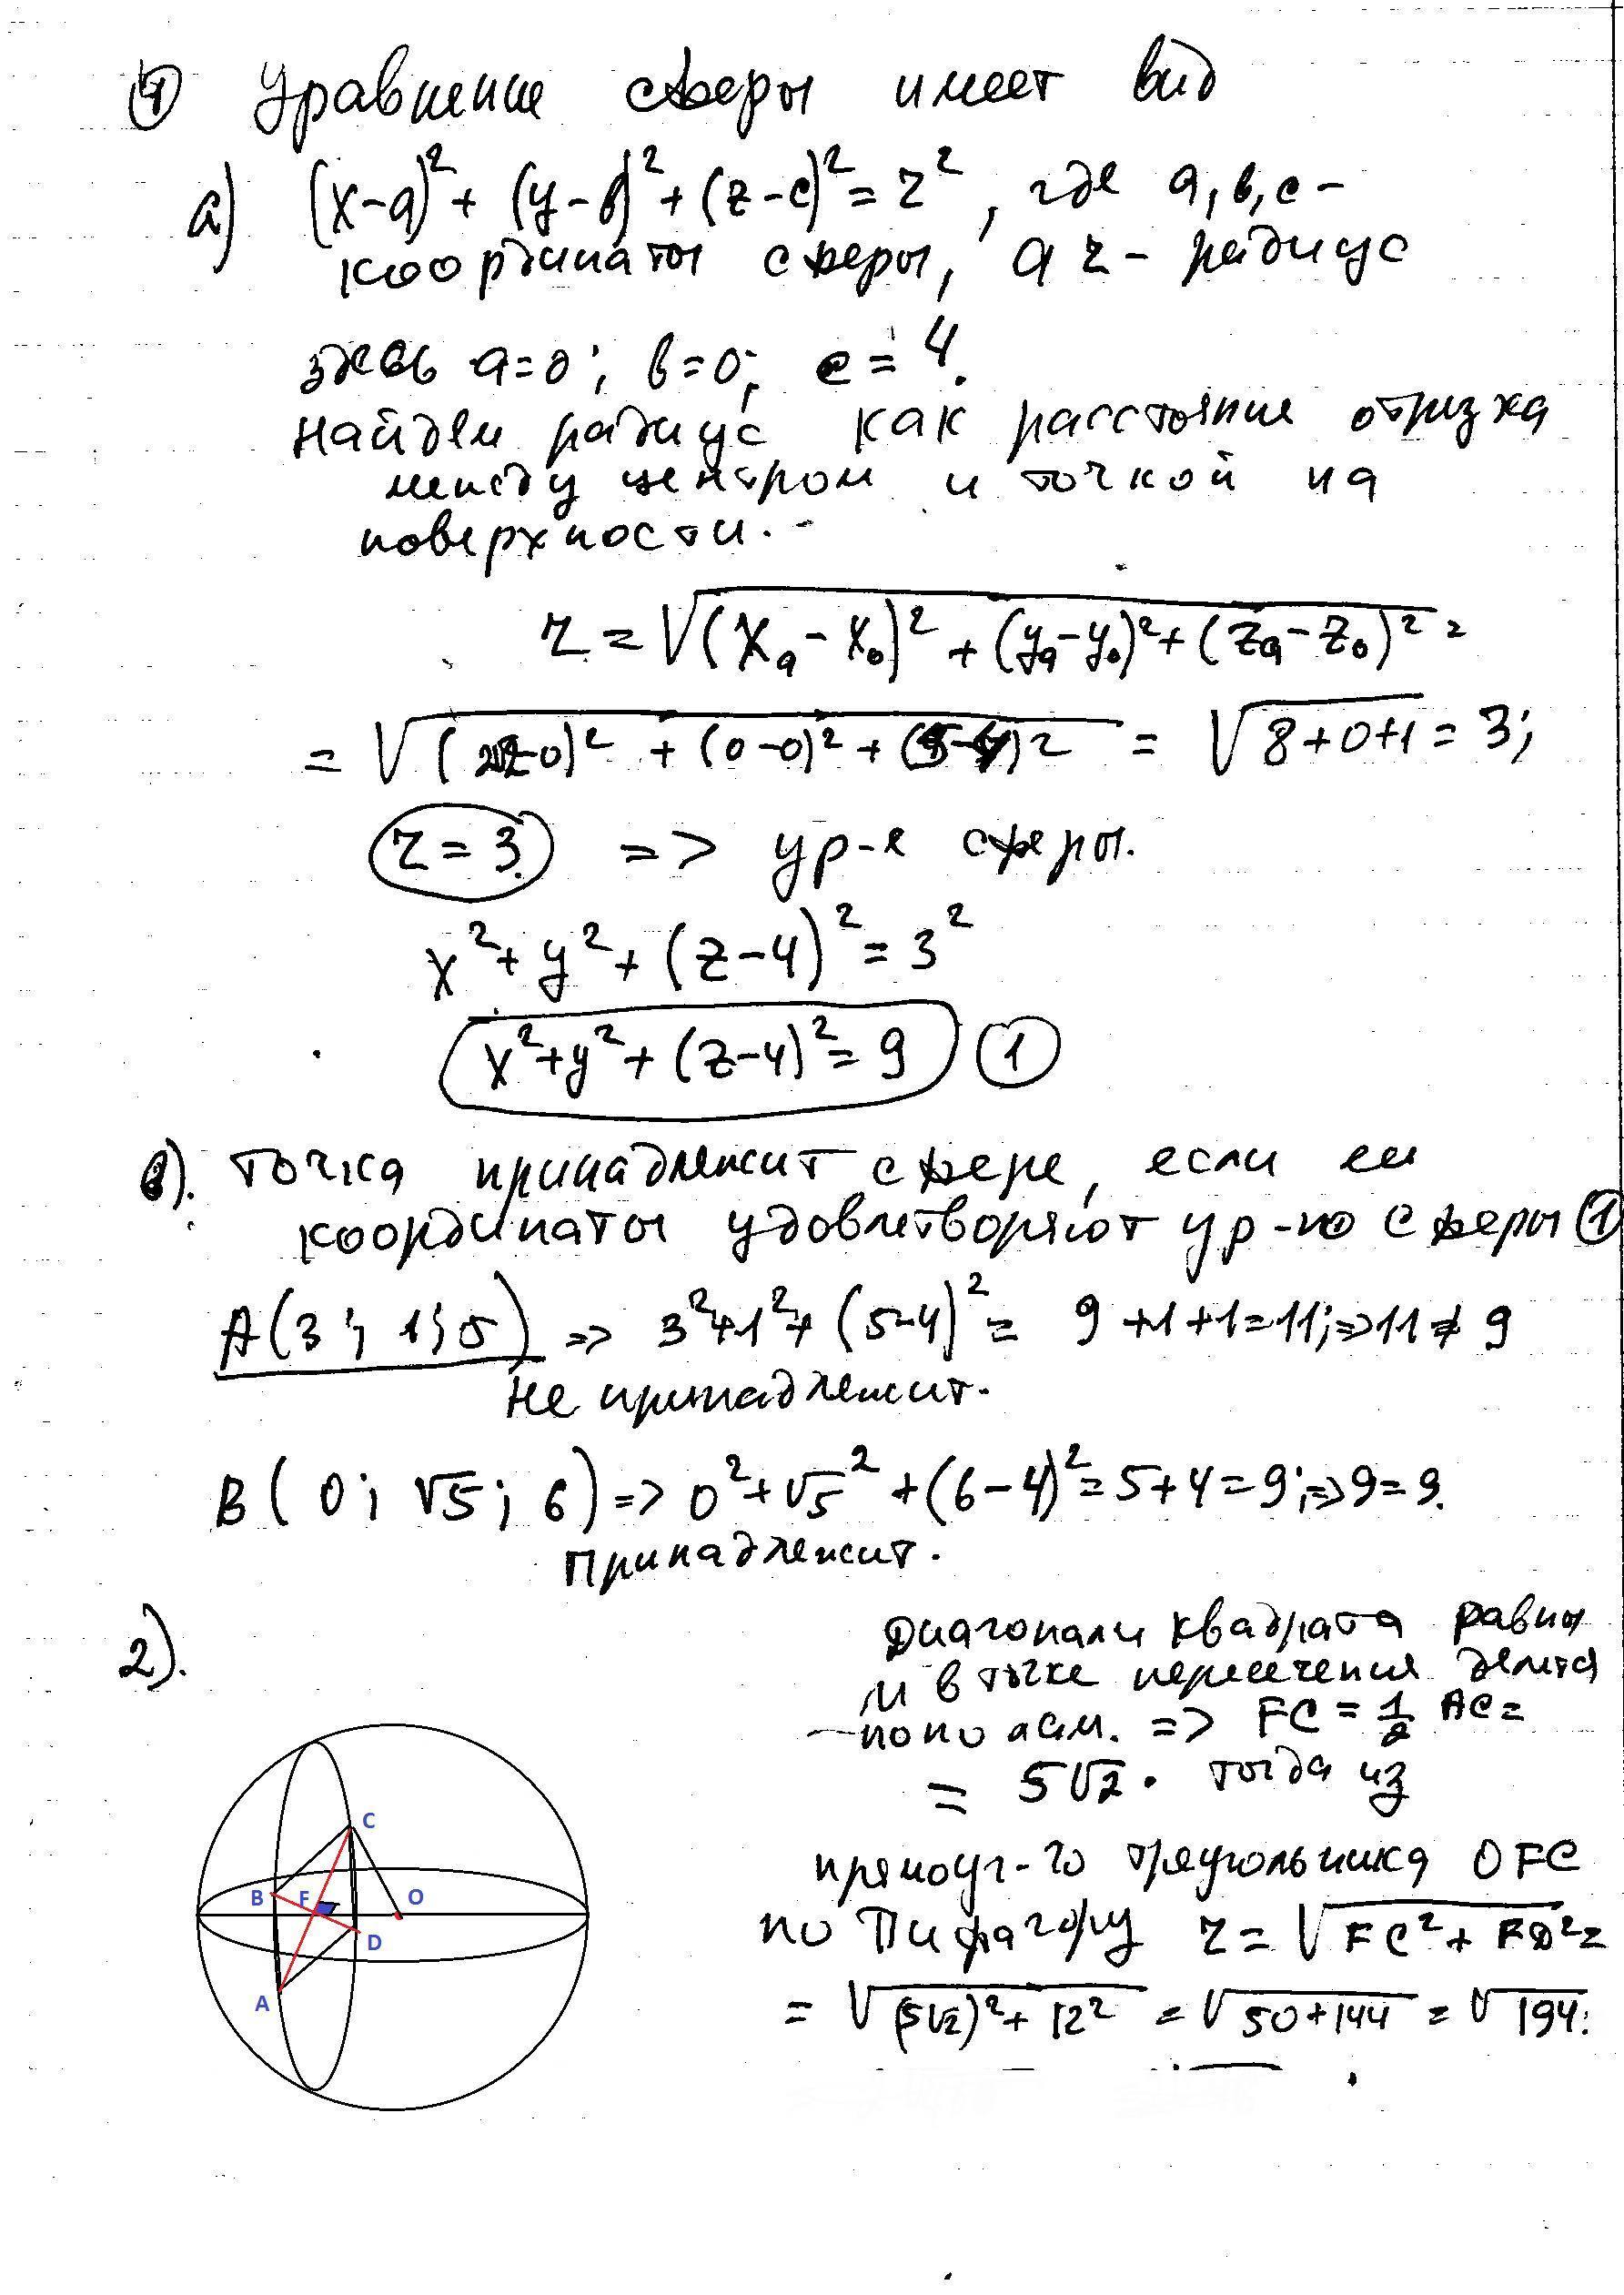 1) Уравнение сферы имеет вид
а) (x-a)² + (y-b)² + (z-c)² = r², где а, в, с -
координаты сферы, а r - радиус
здесь a=0; b=0; c=4.
Найдём радиус как расстояние отрезка
между центром и точкой на
поверхности.
r = √((xₐ-x₀)² + (yₐ-y₀)² + (zₐ-z₀)²) =
= √((2√2-0)² + (0-0)² + (5-4)²) = √(8+0+1) = 3;
r = 3 => ур-е сферы.
x² + y² + (z-4)² = 3²
x² + y² + (z-4)² = 9 (1)
в). Точка принадлежит сфере, если её
координаты удовлетворяют ур-ю сферы (1)
A(3; 1; 5) => 3²+1²+(5-4)² = 9+1+1=11; => 11 ≠ 9
Не принадлежит.
B(0; √5; 6) => 0²+√5²+(6-4)² = 5+4=9; => 9=9.
Принадлежит.
2).
Диагонали квадрата равны
и в точке пересечения делятся
пополам. => FC = 1/2 AC =
= 5√2. тогда из
прямоуг-го треугольника OFC
по Пифагору r = √(FC² + FO²) =
= √((5√2)² + 12²) = √(50+144) = √194.
C
B F O
D
A